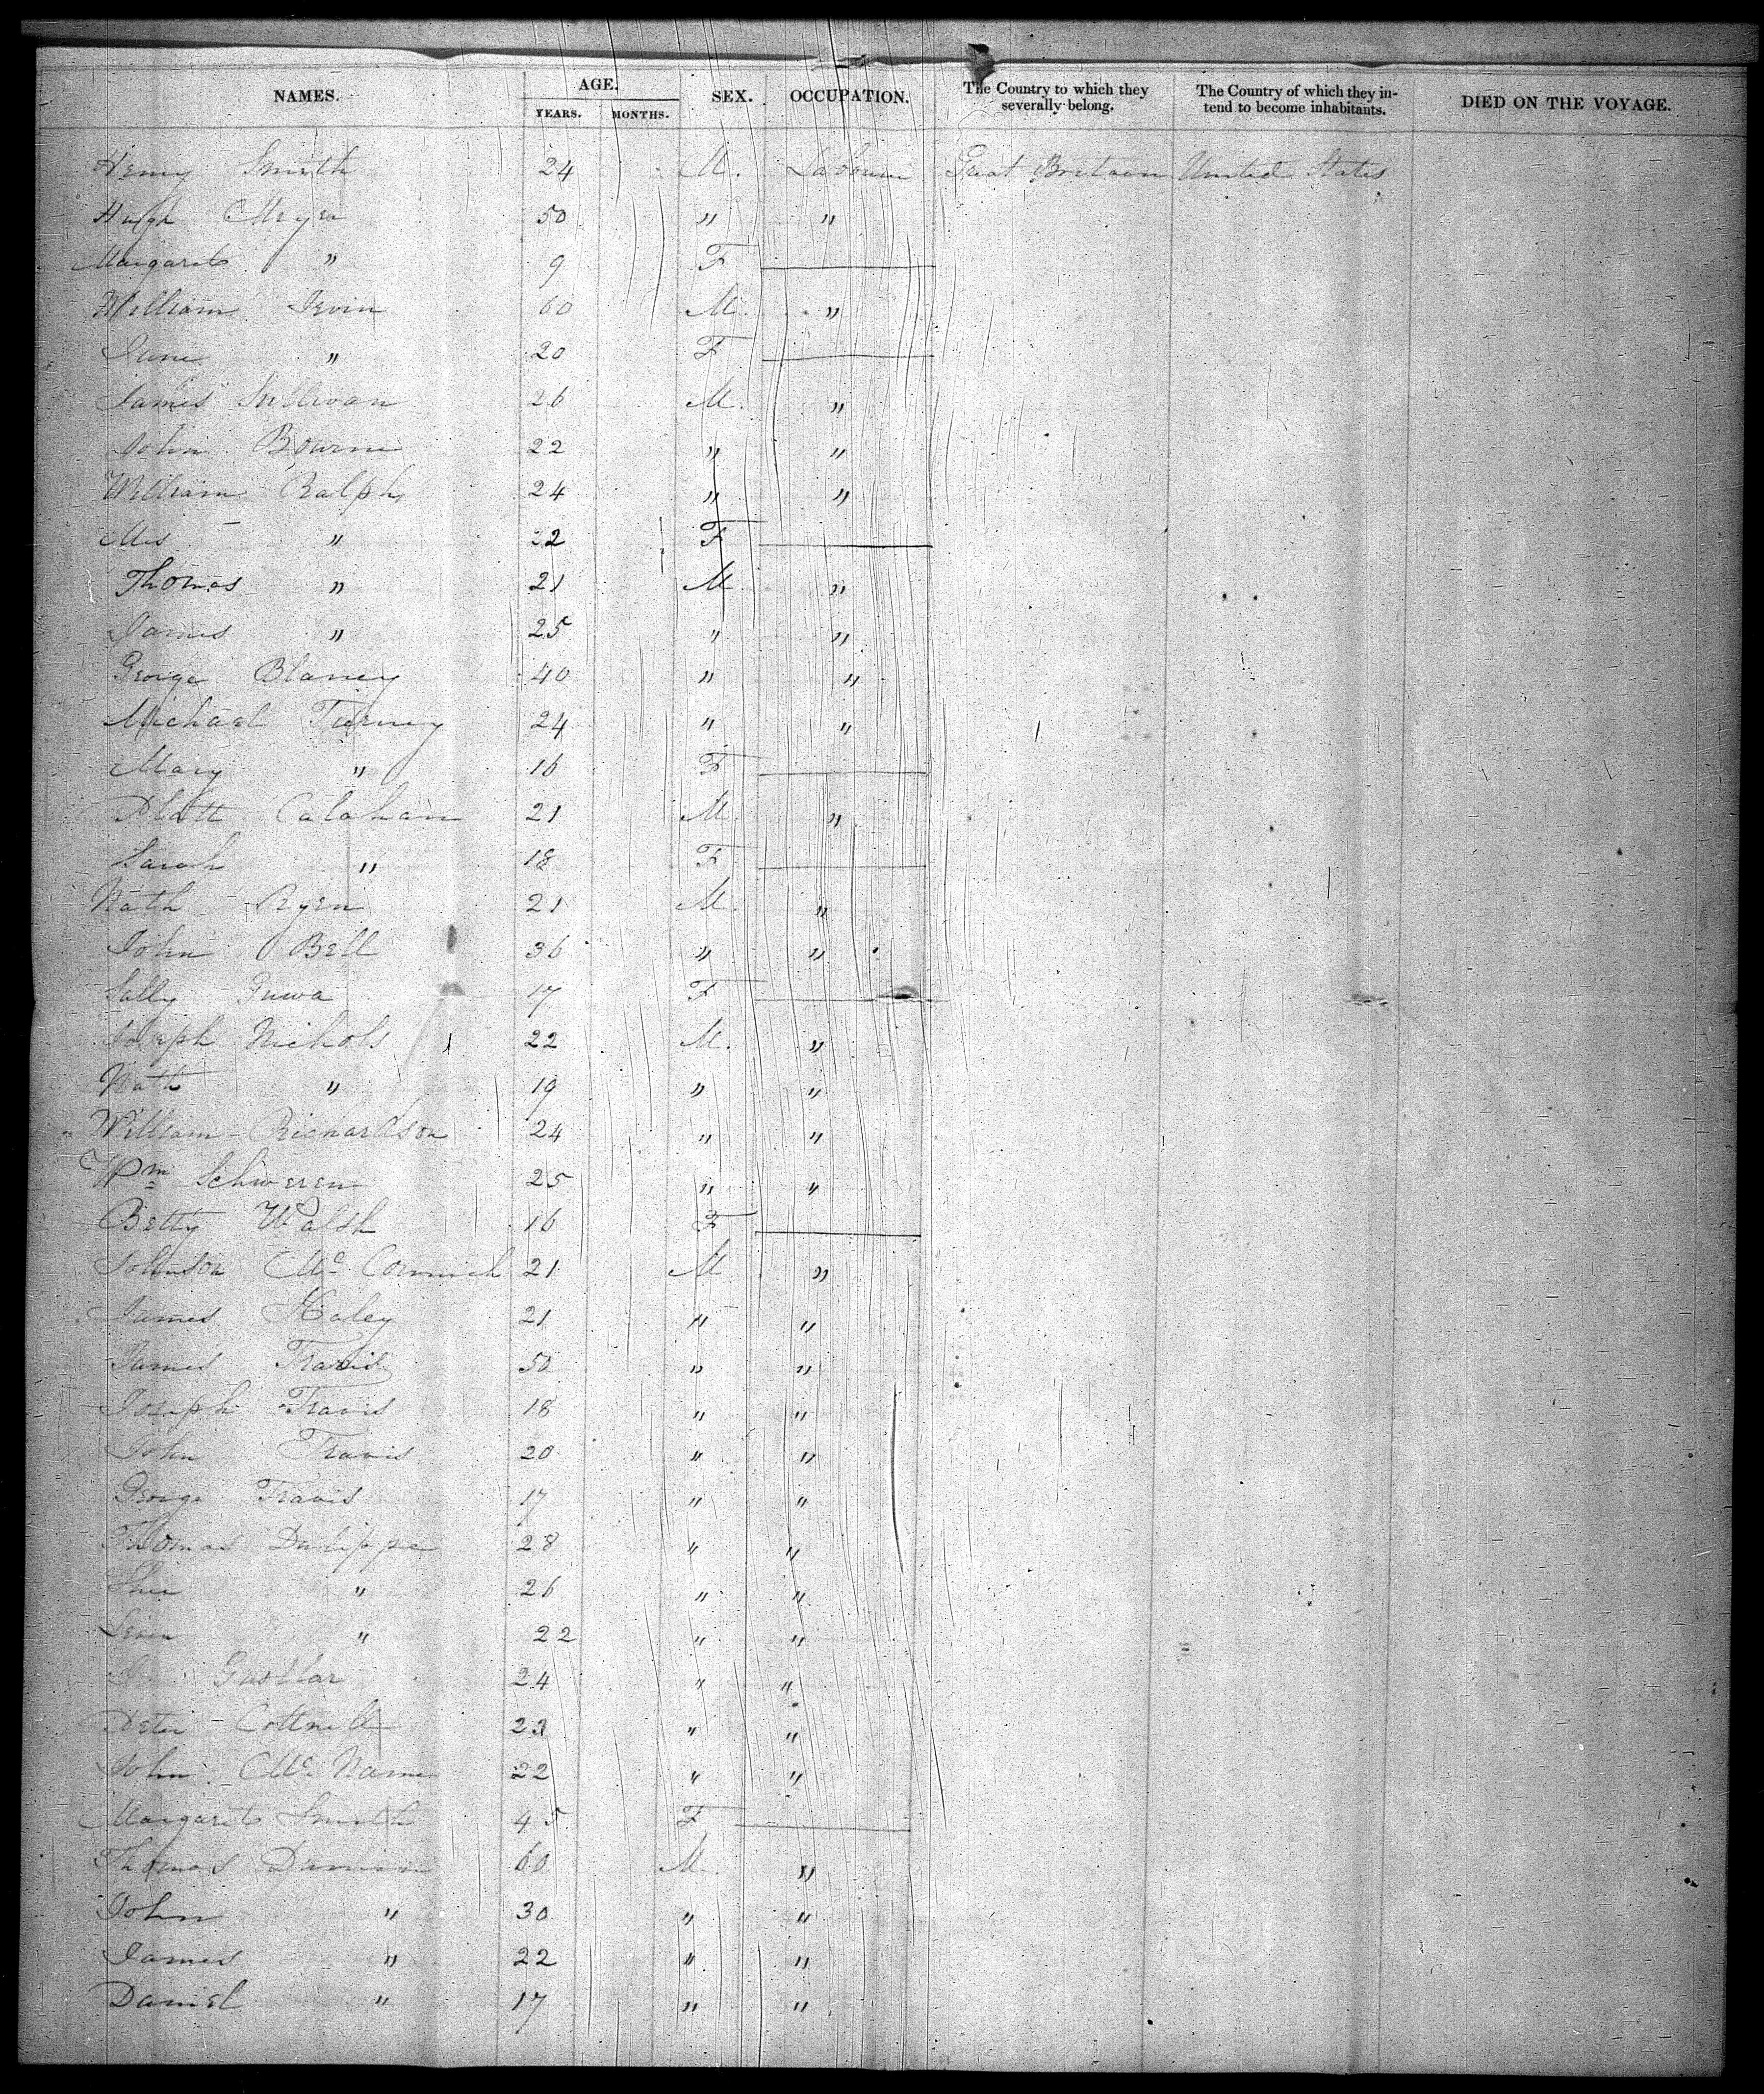 NAMES. AGE. YEARS. MONTHS. SEX. OCCUPATION. The Country to which they severally belong. The Country of which they intend to become inhabitants. DIED ON THE VOYAGE.
Henry Smith 24 M. Great Britain United States
Hugh 50 " "
Margaret " 9 F
William Irvin 60 M. "
Jane " 20 F
James Sullivan 26 M. "
John Bourne 22 " "
William Ralph 24 " "
Mrs " 22 F
Thomas " 21 M. "
James " 25 " "
George Blaney 40 " "
Michael Tierney 24 " "
Mary " 16 F
Calahan 21 M. "
Sarah " 18 F
Nath Ryen 21 M. "
John Bell 36 " "
Sally 17 F
Joseph Nichols 22 M. "
Nath " 19 " "
William Richardson 24 " "
Wm Schweren 25 " "
Betty Walsh 16 F
Johnson Mc Cormick 21 M "
James Haley 21 " "
James Travis 50 " "
Joseph Travis 18 " "
John Travis 20 " "
George Travis 17 " "
Thomas 28 " "
" 26 " "
" 22 " "
24 " "
Peter 23 " "
John Mc 22 " "
Margaret Smith 45 F
Thomas 60 M. "
John " 30 " "
James " 22 " "
Daniel " 17 " "